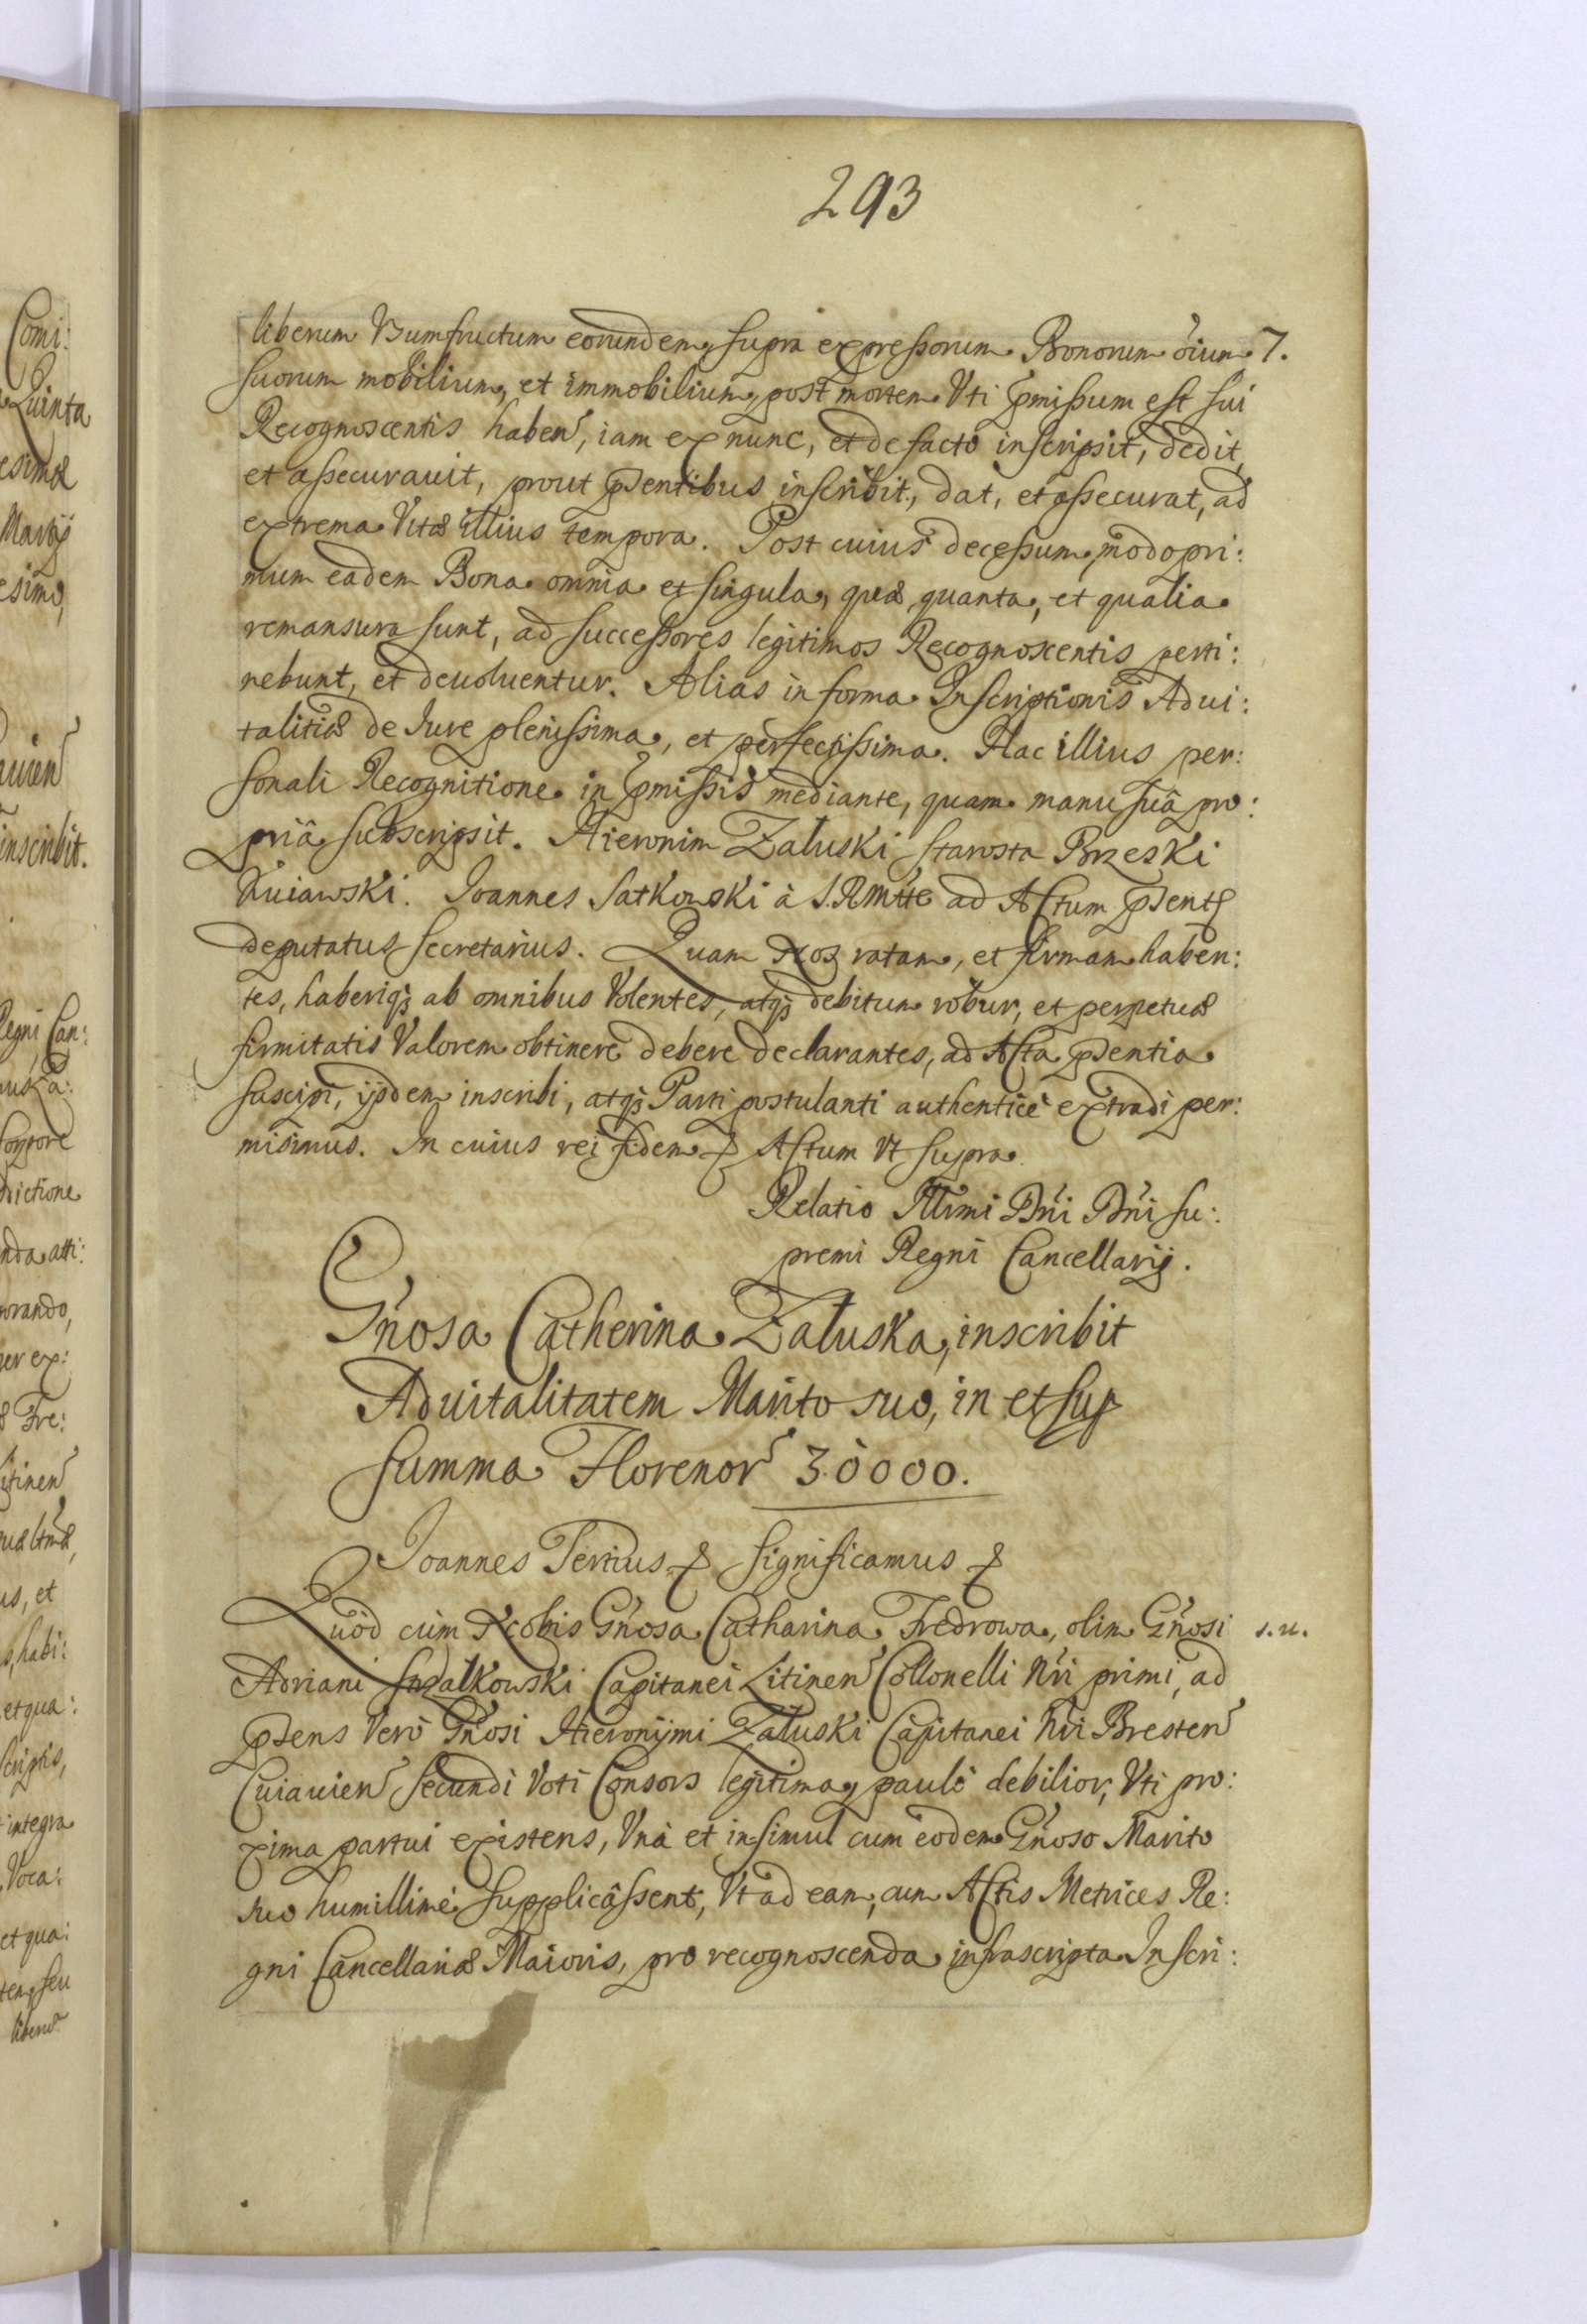 293
liberum Vsumfructum eorundem, supra expressorum Bonorum oium 7.
suorum mobilium, et immobilium, post mortem Vti pmissum est sui
Recognoscentis haben, iam ex nunc, et de facto inscripsit, dedit,
et assecurauit, prout psentibus inscribit, dat, et assecurat, ad
extrema Vitæ illius tempora. Post cuius decessum, modo pri:
mum eadem Bona omnia et singula, quæ, quanta, et qualia
remansura sunt, ad successores legitimos Recognoscentis perti:
nebunt, et deuoluentur. Alias in forma Inscriptionis Adui:
talitiæ de Iure plenissima, et perfectissima. Hac illius per:
sonali Recognitione in pmissis mediante, quam manu suâ pro:
priâ subscripsit. Hieronim Załuski Starosta Brzeski
Kuiawski. Ioannes Satkowski à S.RMtte ad Actum psents
deputatus secretarius. Quam Nos ratam, et firmam haben:
tes, haberiq; ab omnibus Volentes, atq; debitum robur, et perpetuæ
firmitatis Valorem obtinere debere declarantes, ad Acta psentia
suscipi, ijsdem inscribi, atq; Parti postulanti authenticè extradi per:
misimus. In cuius rei fidem & Actum Vt supra.
Relatio Illrmi Dni Dni Su:
premi Regni Cancellarij.
Gnosa Catherina Załuska, inscribit
Aduitalitatem Marito suo, in et sup
summa Florenor 30000.
Ioannes Tertius & significamus &
Quòd cùm Nobis Gnosa Catharina Fredrowa, olim Gnosi s.u.
Adriani Capitanei Litinen Collonelli Nri primi, ad
psens Verò Gnosi Hieronijmi Załuski Capitanei Nri Bresten
Cuiauien secundi Voti Consors legitima, paulò debilior, Vti pro:
xima partui existens, Vnà et insimul cum eodem Gnoso Marito
suo humillimè supplicâssent, Vt ad eam, cum Actis Metrices Re:
gni Cancellariæ Maioris, pro recognoscenda infrascripta Inscri: